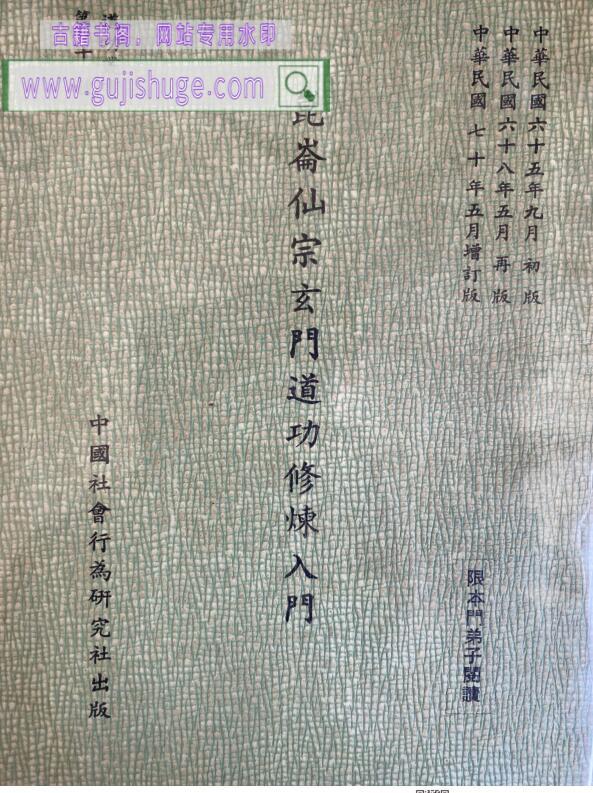 中華民國六十五年九月初版
中華民國六十八年五月再版
中華民國七十年五月增訂版
限本門弟子閱讀
崑崙仙宗玄門道功修煉入門
中國社會行為研究社出版
古籍书阁，网站专用水印
www.gujishuge.com